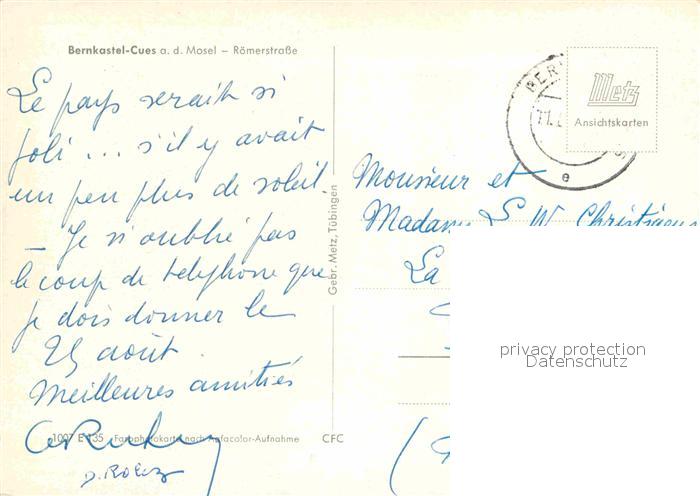 Bernkastel-Cues a. d. Mosel – Römerstraße
Le pays serait si
joli ... s'il y avait
un peu plus de soleil.
– Je n'oublie pas
le coup de téléphone que
je dois donner le
25 août.
Meilleures amitiés
1007 E 135 Farbphotokarte nach Agfacolor-Aufnahme CFC
Gebr. Metz, Tübingen
Metz
Ansichtskarten
BER
11.
e
Monsieur et
Madame S. W.
La
privacy protection
Datenschutz